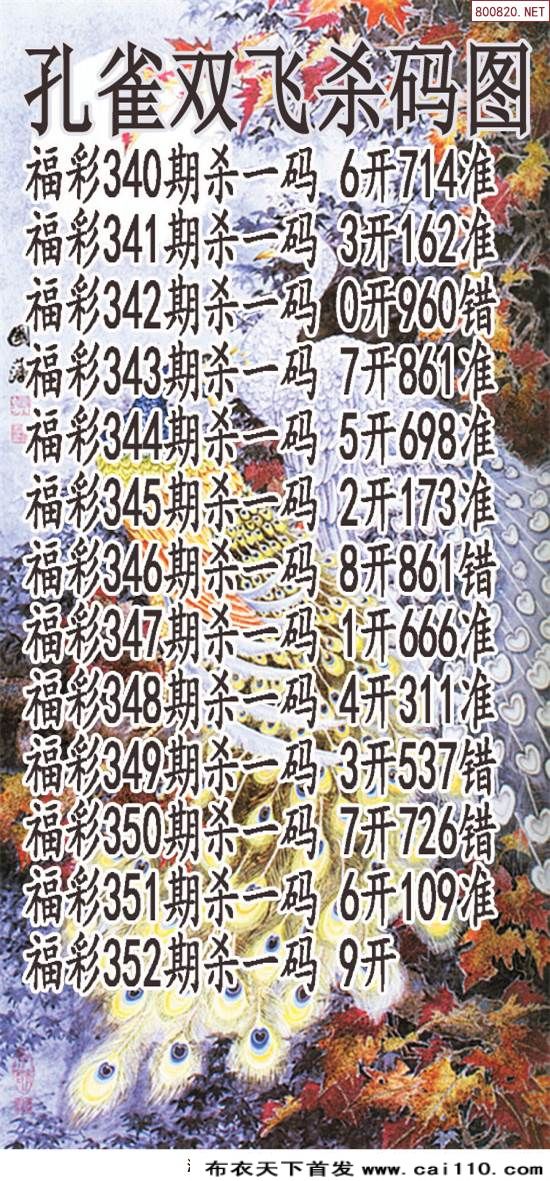 800820.NET
孔雀双飞杀码图
福彩340期杀一码 6开714准
福彩341期杀一码 3开162准
福彩342期杀一码 0开960错
福彩343期杀一码 7开861准
福彩344期杀一码 5开698准
福彩345期杀一码 2开173准
福彩346期杀一码 8开861错
福彩347期杀一码 1开666准
福彩348期杀一码 4开311准
福彩349期杀一码 3开537错
福彩350期杀一码 7开726错
福彩351期杀一码 6开109准
福彩352期杀一码 9开
布衣天下首发 www.cai110.com